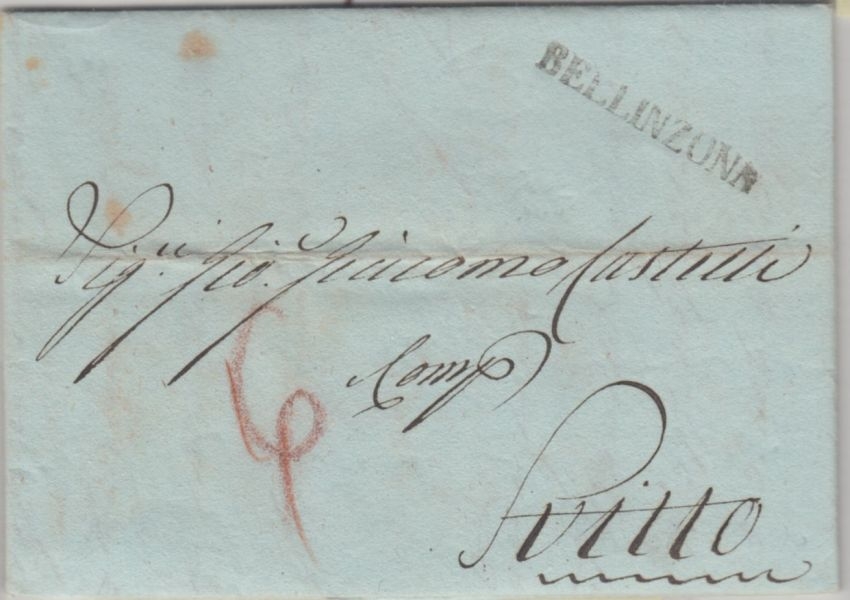 BELLINZONA
Sig.ri Gio. Giacomo Castelli
Comp
Svitto